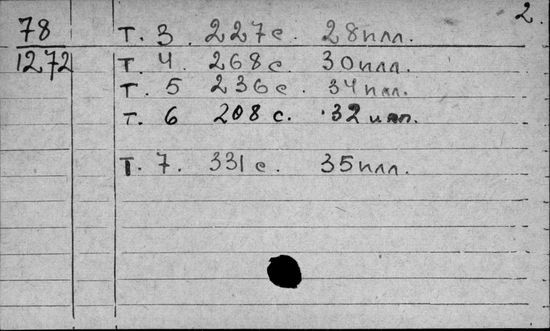 2.
78 Т. 3. 227с. 28илл.
1272 Т. 4. 268с. 30илл.
Т. 5 236с. 34илл.
Т. 6 208с. 32илл.
Т. 7. 331с. 35илл.